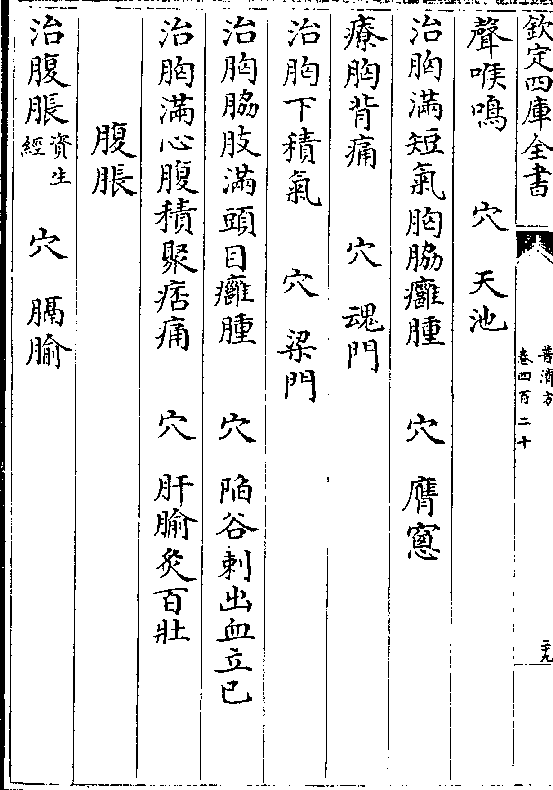 欽定四庫全書
普濟方
卷四百二十
二十九
聲喉鳴 穴 天池
治胸滿短氣胸脇癰腫 穴 膺窻
療胸背痛 穴 魂門
治胸下積氣 穴 梁門
治胸脇肢滿頭目癰腫 穴 陷谷刺出血立已
治胸滿心腹積聚痞痛 穴 肝腧灸百壯
腹脹
治腹脹資生經 穴 膈腧